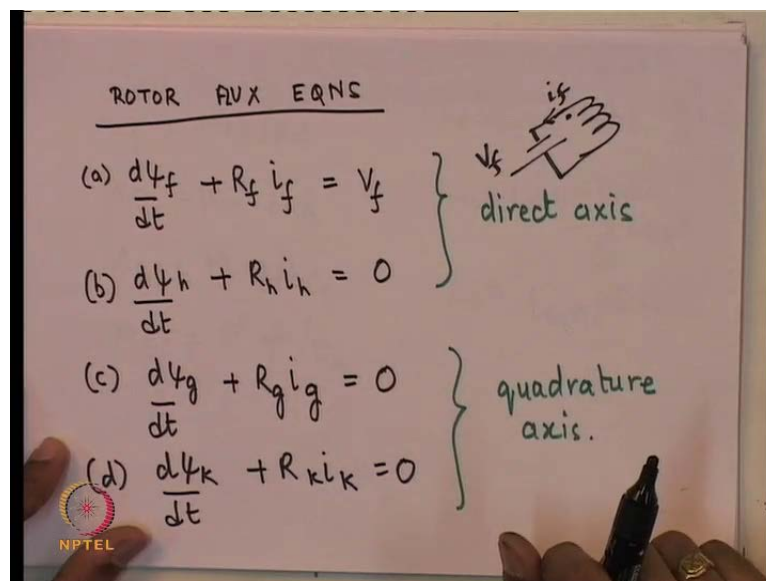 ROTOR FLUX EQNS
(a) dψf/dt + Rf if = Vf
(b) dψh/dt + Rh ih = 0
direct axis
if
Vf
(c) dψg/dt + Rg ig = 0
(d) dψk/dt + Rk ik = 0
quadrature
axis.
NPTEL